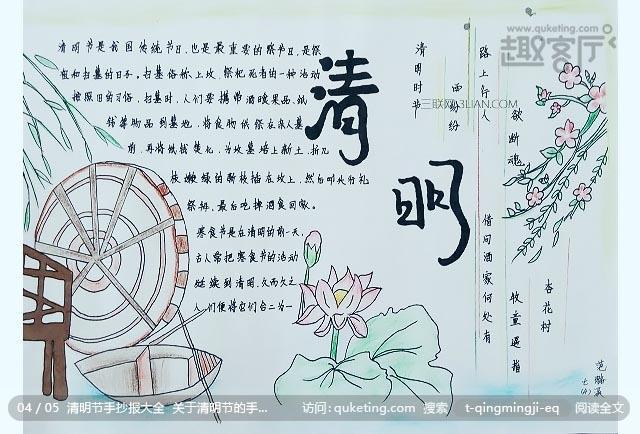 清明节是我国传统节日,也是最重要的祭祀节日,是祭
祖和扫墓的日子。扫墓俗称上坟,祭祀死者的一种活动
按照旧的习俗,扫墓时,人们要携带酒食果品,纸
钱等物品到墓地,将食物供祭在亲人墓
前,再将纸钱焚化,为坟墓培上新土,折几
枝嫩绿的新枝插在坟上,然后叩头行礼
祭拜,最后吃掉酒食回家。
寒食节是在清明的前一天,
古人常把寒食节的活动
延续到清明,久而久之
人们便将它们合二为一
清
明
清明时节
雨纷纷
路上行人
欲断魂
借问酒家何处有
牧童遥指
杏花村
www.quketing.com
趣客厅
三联网3LIAN.COM
04 / 05 清明节手抄报大全 关于清明节的手... 访问: quketing.com 搜索 t-qingmingji-eq 阅读全文